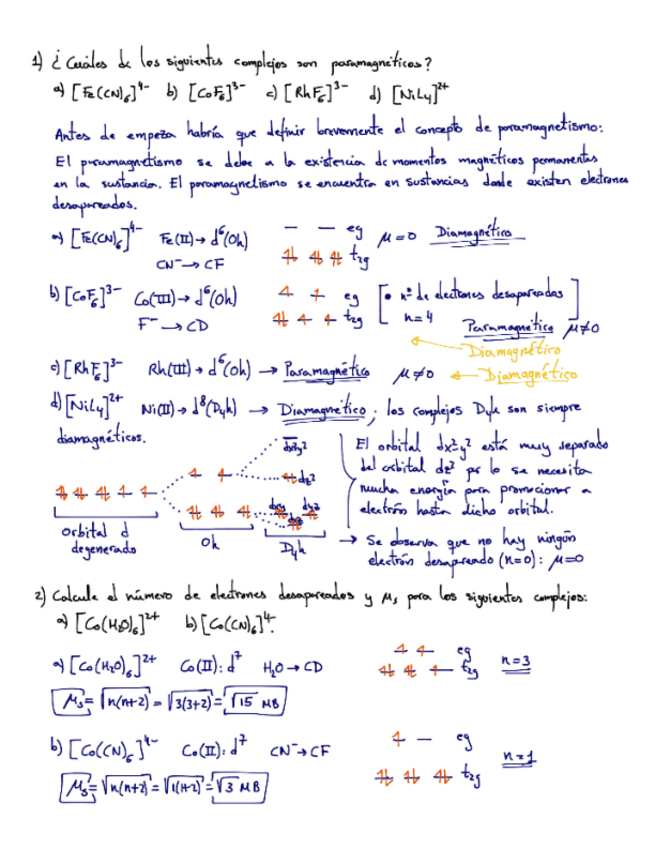 1) ¿Cuáles de los siguientes complejos son paramagnéticos?
a) [Fe(CN)6]4- b) [CoF6]3- c) [RhF6]3- d) [NiL4]2+
Antes de empezar habría que definir brevemente el concepto de paramagnetismo:
El paramagnetismo se debe a la existencia de momentos magnéticos permanentes
en la sustancia. El paramagnetismo se encuentra en sustancias donde existen electrones
desapareados.
a) [Fe(CN)6]4- Fe(II) → d6(Oh) eg μ=0 Diamagnético
CN- → CF t2g
b) [CoF6]3- Co(III) → d6(Oh) eg [• nº de electrones desapareados]
F- → CD t2g n=4 Paramagnético μ≠0
Diamagnético
c) [RhF6]3- Rh(III) → d6(Oh) → Paramagnético μ≠0 ← Diamagnético
d) [NiL4]2+ Ni(II) → d8(D4h) → Diamagnético; los complejos D4h son siempre
diamagnéticos.
dx2-y2
dz2
dxy dyz
dxz
Orbital d
degenerado
Oh
D4h
El orbital dx2-y2 está muy separado
del orbital dz2 por lo se necesita
mucha energía para promocionar a
electrón hasta dicho orbital.
→ Se observa que no hay ningún
electrón desapareado (n=0): μ=0
2) Calcule el número de electrones desapareados y μs para los siguientes complejos:
a) [Co(H2O)6]2+ b) [Co(CN)6]4-.
a) [Co(H2O)6]2+ Co(II): d7 H2O → CD eg t2g n=3
μs = √n(n+2) = √3(3+2) = √15 MB
b) [Co(CN)6]4- Co(II): d7 CN- → CF eg t2g n=1
μs = √n(n+2) = √1(1+2) = √3 MB